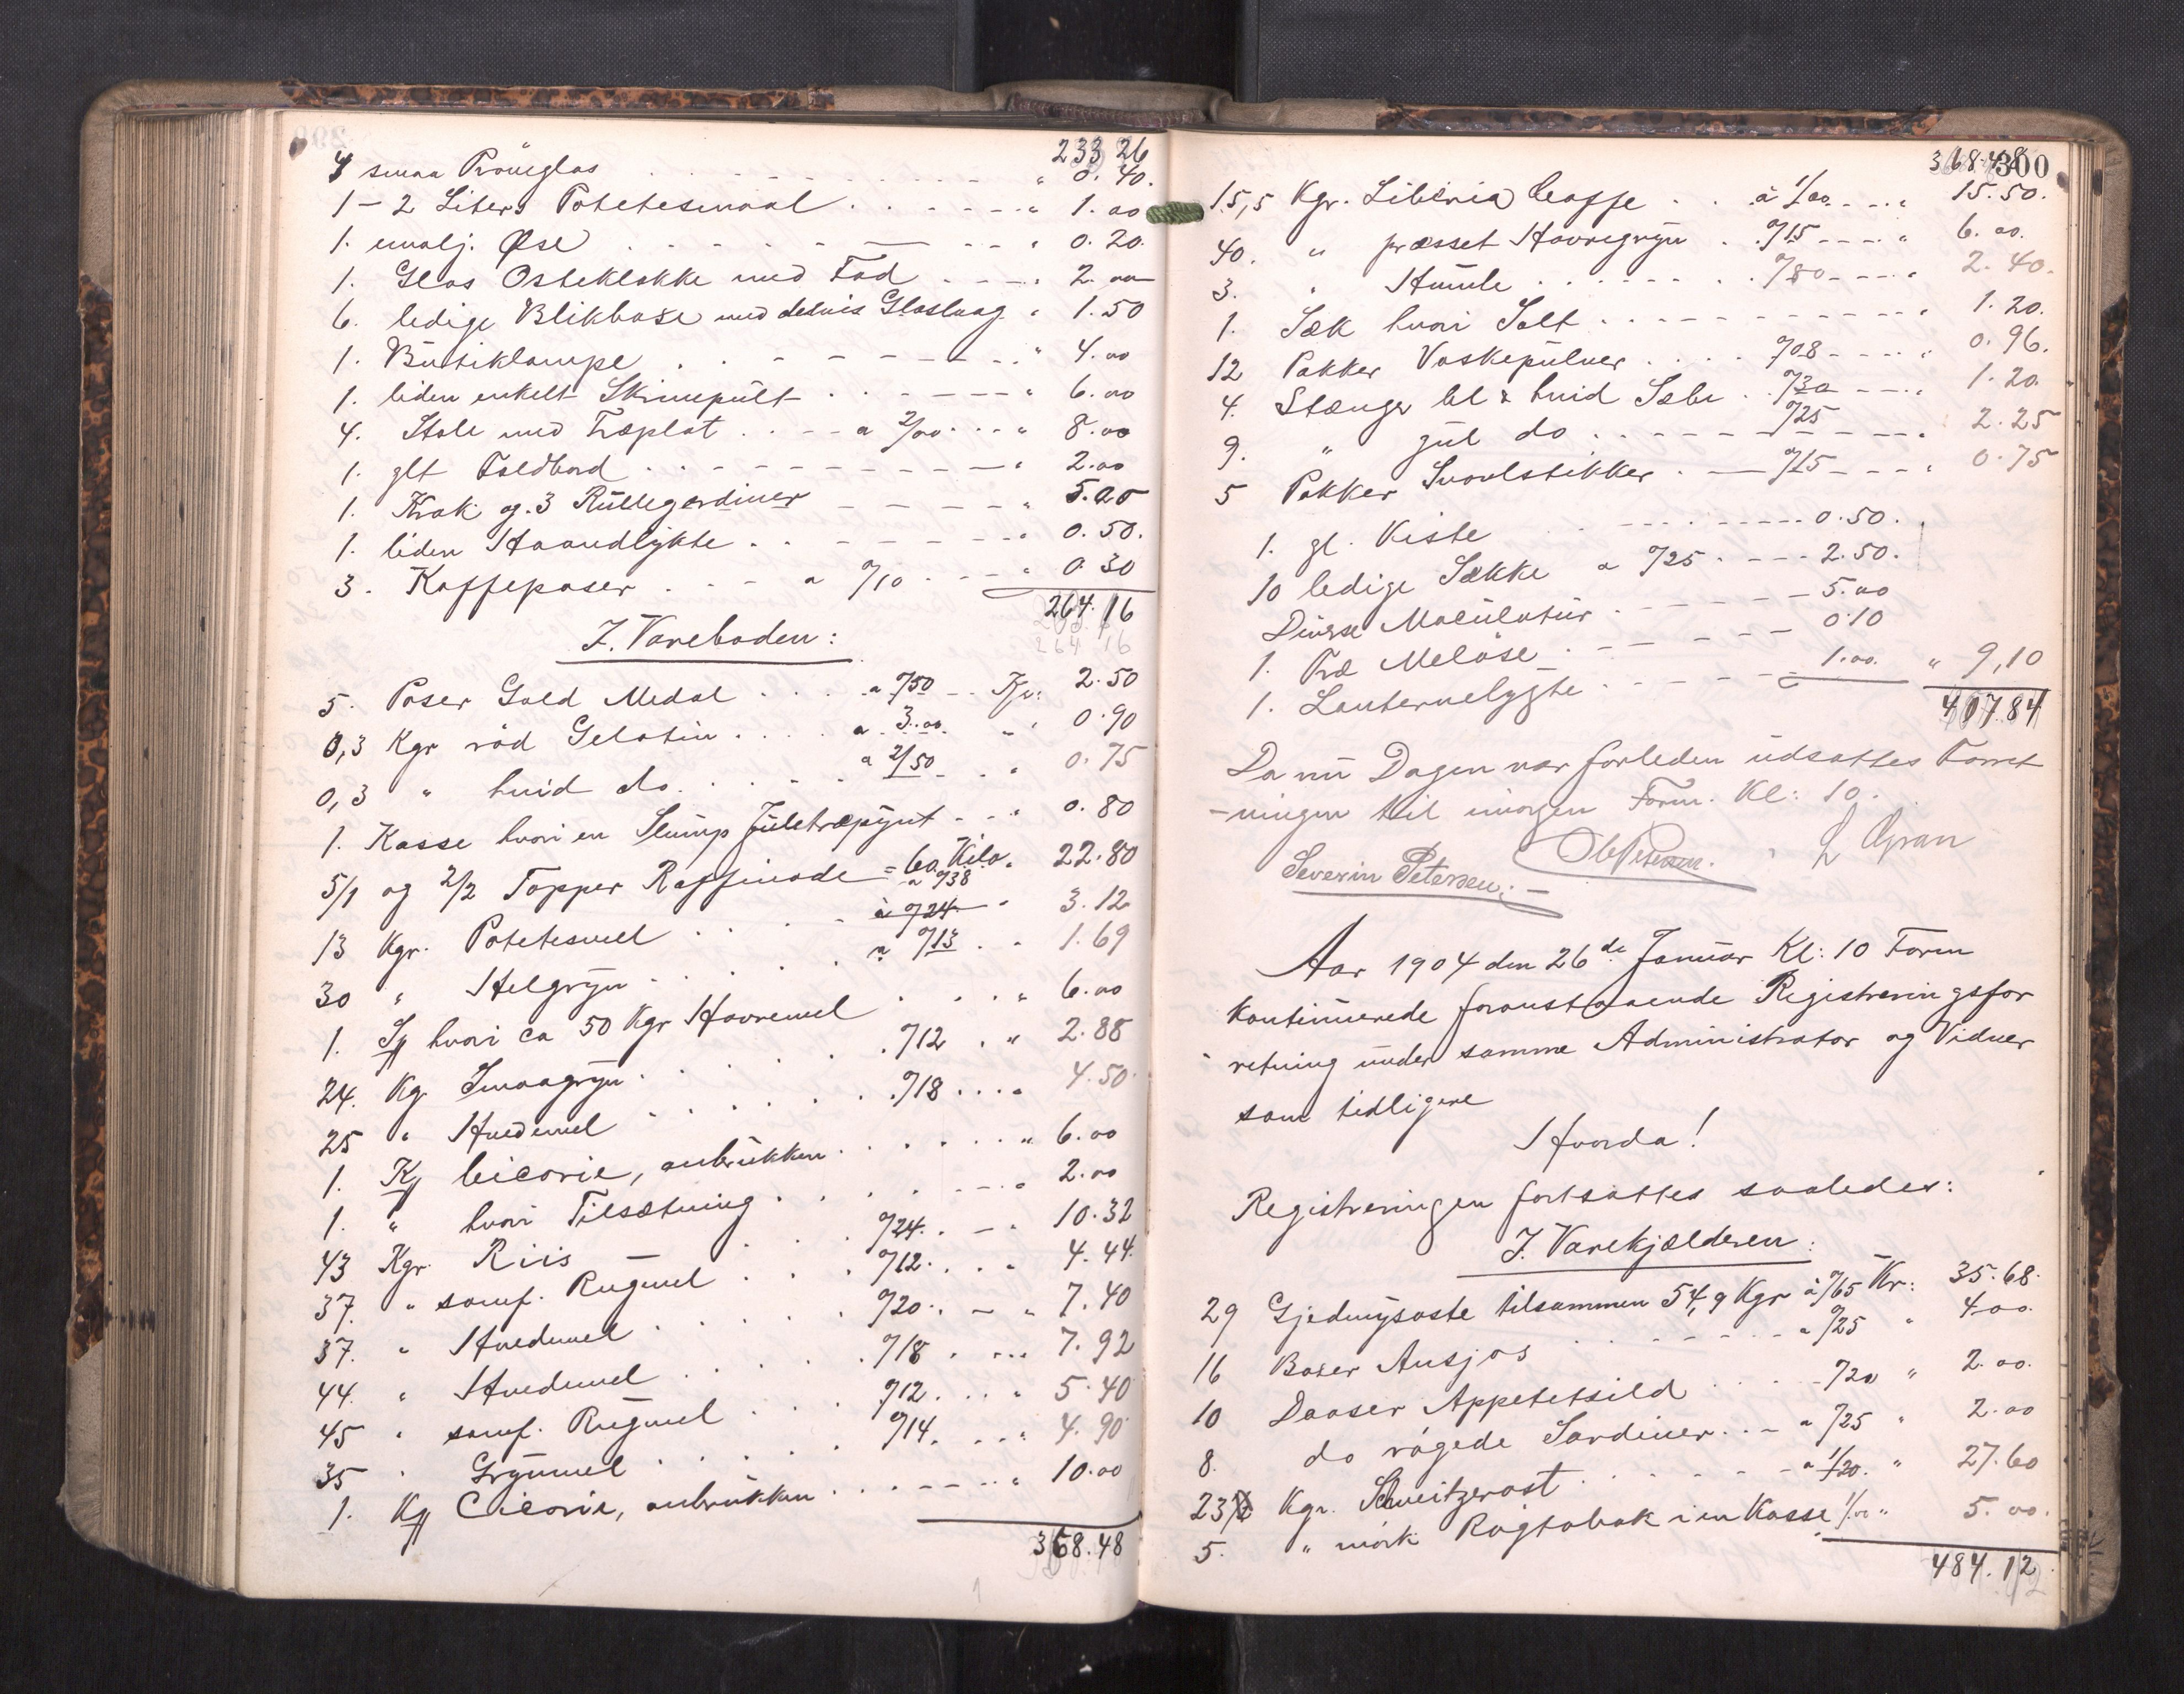 233 26
4 smaa Prøveglas " 0.40.
1 - 2 Liters Potetesmaal " 1.00
1. emalj. Øse " 0.20.
1. Glas Osteklokke med Fad " 2.00
6. ledige Blikbokse med delvis Glaslaag " 1.50
1. Butiklampe " 4.00
1. liden enkelt Skrivepult " 6.00
4. Stole med Træplat a 2/00 " 8.00
1. glt Foldbord " 2.00
1. Krak og 3 Rullegardiner " 5.00
1. liden Haandlykte " 0.50.
3. Kaffeposer a %10 " 0.30
264.16
264 16
I. Vareboden:
5. Poser Gold Medal a %50 Kr: 2.50
0,3 Kgr rød Gelatin a 3.00 " 0.90
0,3 " hvid do. a 2/50 " 0.75
1. Kasse hvori en Slump Juletræpynt " 0.80
5/1 og 2/2 Topper Raffinade = 60 Kilo a %38 " 22.80
13 Kgr. Potetesmel à %24 " 3.12
30 " Helgryn a %13 " 1.69
1. Sj hvori ca 50 Kgr Havremel " 6.00
24. Kg Smaagryn %12 " 2.88
25 " Hvedemel %18 " 4.50
1. Kj Cicorie, anbrukken " 6.00
1. " hvori Tilsætning " 2.00
43 Kgr. Riis %24 " 10.32
37. " samf. Rugmel %12 " 4.44.
37. " Hvedemel %20 " 7.40
44. " Hvedemel %18 " 7.92
45 " samf. Rugmel %12 " 5.40
35 " Grynmel %14 " 4.90
1. Kj Cicorie, anbrukken " 10.00
368.48
368.48 300
15,5 Kgr. Liberia Caffe à 1/00 " 15.50.
40. " præsset Havregryn %15 " 6.00.
3. " Humle %80 " 2.40.
1. Sæk hvori Salt " 1.20.
12 Pakker Vaskepulver %08 " 0.96.
4. Stænger bl & hvid Sæbe %30 " 1.20.
9. " gul do %25 " 2.25
5 Pakker Svovlstikker %15 " 0.75
1. gl. Kiste 0.50.
10 ledige Sække a %25 2.50.
Diverse Maculatur 5.00
1. Træ Meløse 0.10
1. Lanternelygte 1.00. " 9,10
407.84
Da nu Dagen var forleden udsattes Forret
-ningen til imorgen Form. Kl: 10.
Severin Petersen. L Gran
Aar 1904 den 26de Januar Kl: 10 Form
kontinuerede foranstaaende Registreringsfor
retning under samme Administrator og Vidner
som tidligere
Hvorda!
Registreringen fortsattes saaledes:
I. Varekjælderen:
29 Gjedmysoste tilsammen 54,9 Kgr à %65 Kr: 35.68.
16 Boxer Ansjos a %25 " 4.00.
10 Daaser Appetetsild %20 " 2.00.
8. do røgede Sardiner a %25 " 2.00
23 Kgr. Schweitzerost a 1/20. " 27.60
5. " mørk Røgtobak i en Kasse 1/00 " 5.00.
484.12